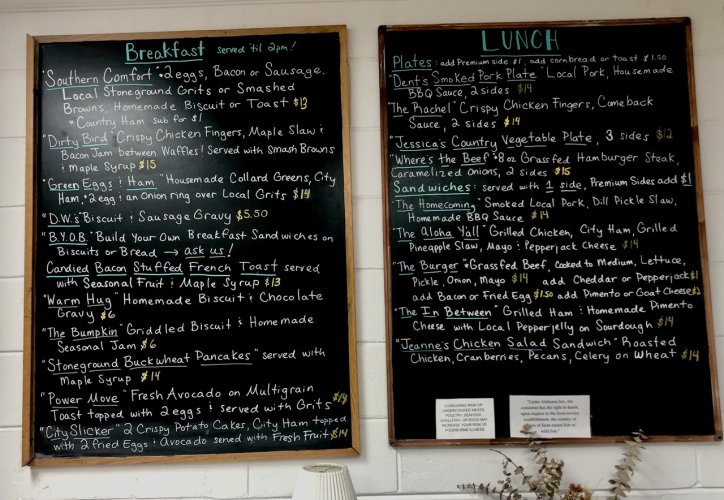 Breakfast served 'til 2pm!
"Southern Comfort" • 2 eggs, Bacon or Sausage,
Local Stoneground Grits or Smashed
Browns, Homemade Biscuit or Toast $13
*Country Ham sub for $1
"Dirty Bird" Crispy Chicken Fingers, Maple Slaw &
Bacon Jam between Waffles! Served with Smash Browns
& Maple Syrup $15
"Green Eggs & Ham" Housemade Collard Greens, City
Ham, • 2 egg & an Onion ring over Local Grits $14
"D.W.'s" Biscuit & Sausage Gravy $5.50
"B.Y.O.B." Build Your Own Breakfast Sandwiches on
Biscuits or Bread → ask us!
Candied Bacon Stuffed French Toast served
with Seasonal Fruit & Maple Syrup $13
"Warm Hug" Homemade Biscuit & Chocolate
Gravy $6
"The Bumpkin" Griddled Biscuit & Homemade
Seasonal Jam $6
"Stoneground Buckwheat Pancakes" served with
Maple Syrup $14
"Power Move" Fresh Avocado on Multigrain
Toast topped with 2 eggs & served with Grits $14
"City Slicker" 2 Crispy Potato Cakes, City Ham topped
with 2 fried Eggs & Avocado served with Fresh Fruit $14
LUNCH
Plates: add Premium side $1, add cornbread or toast $1.50
"Dent's Smoked Pork Plate" Local Pork, Housemade
BBQ Sauce, 2 sides $14
"The Rachel" Crispy Chicken Fingers, Comeback
Sauce, 2 sides $14
"Jessica's Country Vegetable Plate, 3 sides $12
"Where's the Beef" • 8oz Grassfed Hamburger Steak,
Caramelized Onions, 2 sides $15
Sandwiches: served with 1 side, Premium Sides add $1
"The Homecoming" Smoked Local Pork, Dill Pickle Slaw,
Homemade BBQ Sauce $14
"The Aloha Y'all" Grilled Chicken, City Ham, Grilled
Pineapple Slaw, Mayo & Pepperjack Cheese $14
"The Burger" • Grassfed Beef, cooked to Medium, Lettuce,
Pickle, Onion, Mayo $14 add Cheddar or Pepperjack $1
add Bacon or Fried Egg $1.50 add Pimento or Goat Cheese $2
"The In Between" Grilled Ham & Homemade Pimento
Cheese with Local Pepperjelly on Sourdough $14
"Jeanne's Chicken Salad Sandwich" Roasted
Chicken, Cranberries, Pecans, Celery on Wheat $14
CONSUMING RAW OR
UNDERCOOKED MEATS,
POULTRY, SEAFOOD,
SHELLFISH, OR EGGS MAY
INCREASE YOUR RISK OF
FOODBORNE ILLNESS
"Under Alabama law, the
consumer has the right to know,
upon request to the food service
establishment, the country of
origin of farm-raised fish or
wild fish."